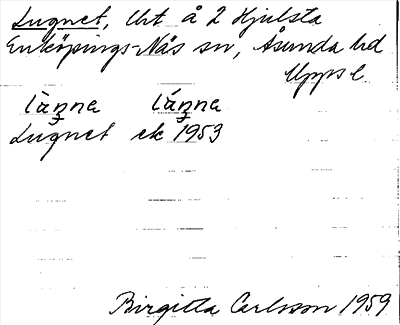 Lugnet, Lht å 2 Hjulsta
Enköpings-Näs sn, Åsunda hd
Uppsl
länna länna
Lugnet ek 1953
Birgitta Carlsson 1959